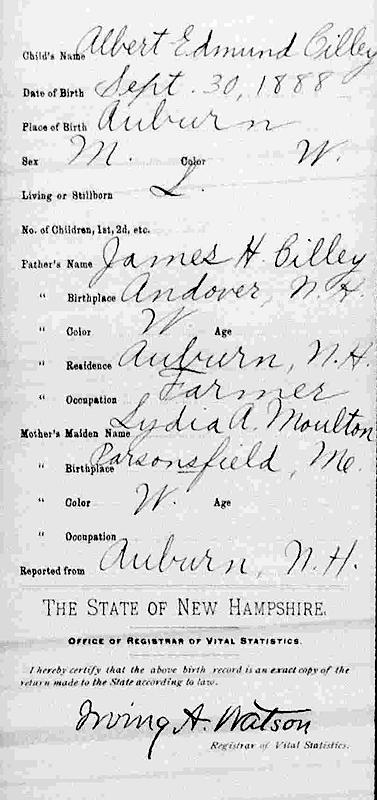 Child's Name Albert Edmund Cilley
Date of Birth Sept. 30, 1888
Place of Birth Auburn
Sex M. Color W.
Living or Stillborn L.
No. of Children, 1st, 2d, etc.
Father's Name James H. Cilley
" Birthplace Andover, N.H.
" Color W. Age
" Residence Auburn, N.H.
" Occupation Farmer
Mother's Maiden Name Lydia A. Moulton
" Birthplace Parsonsfield, Me.
" Color W. Age
" Occupation
Reported from Auburn, N.H.
THE STATE OF NEW HAMPSHIRE.
OFFICE OF REGISTRAR OF VITAL STATISTICS.
I hereby certify that the above birth record is an exact copy of the
return made to the State according to law.
Irving A. Watson
Registrar of Vital Statistics.